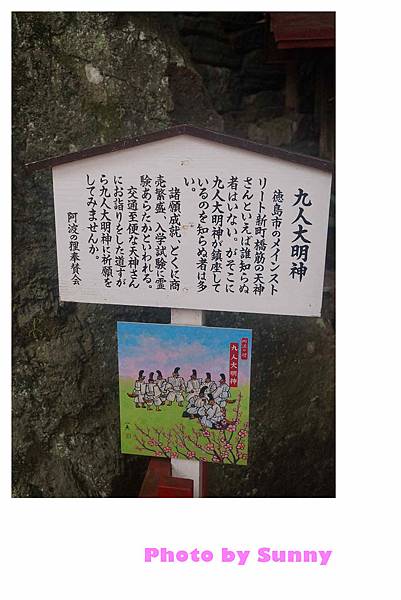 九人大明神
徳島市のメインスト
リート新町橋筋の天神
さんといえば誰知らぬ
者はいない。がそこに
九人大明神が鎮座して
いるのを知らぬ者は多
い。
諸願成就、とくに商
売繁盛、入学試験に霊
験あらたかといわれる。
交通至便な天神さん
にお詣りをした道すが
ら九人大明神に祈願を
してみませんか。
阿波の狸奉賛会
九人大明神
Photo by Sunny